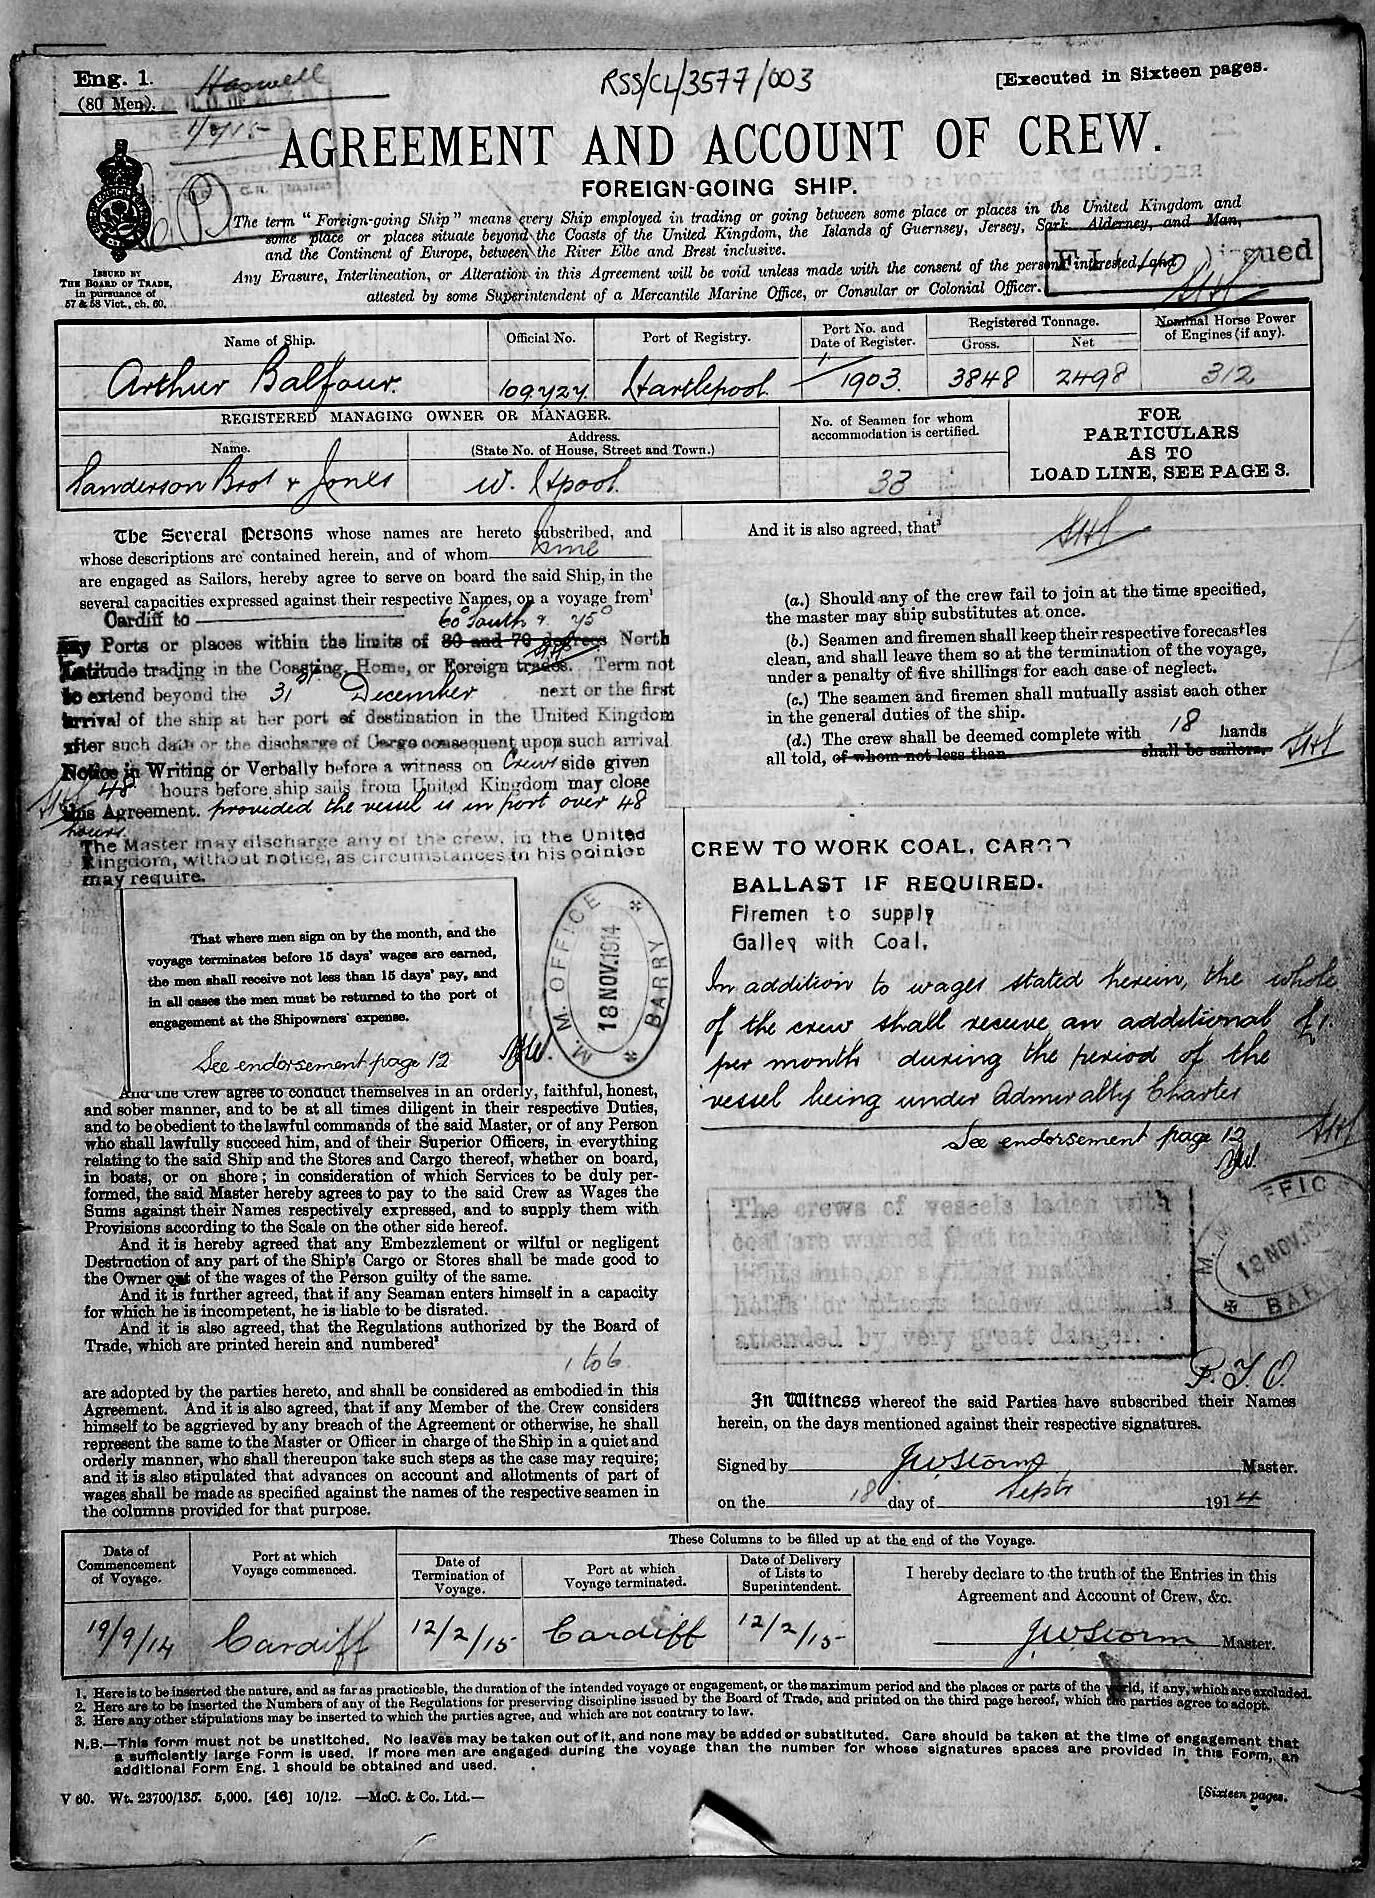 Eng. 1.
(80 Men).
Haswell
RSS/CL/3577/003
[Executed in Sixteen pages.
AGREEMENT AND ACCOUNT OF CREW.
FOREIGN-GOING SHIP.
ISSUED BY
THE BOARD OF TRADE,
in pursuance of
57 & 58 Vict., ch. 60.
The term "Foreign-going Ship" means every Ship employed in trading or going between some place or places in the United Kingdom and
some place or places situate beyond the Coasts of the United Kingdom, the Islands of Guernsey, Jersey, Sark, Alderney, and Man,
and the Continent of Europe, between the River Elbe and Brest inclusive.
Any Erasure, Interlineation, or Alteration in this Agreement will be void unless made with the consent of the persons interested, and
attested by some Superintendent of a Mercantile Marine Office, or Consular or Colonial Officer.
Name of Ship.
Official No.
Port of Registry.
Port No. and
Date of Register.
Registered Tonnage.
Gross.
Net
Nominal Horse Power
of Engines (if any).
Arthur Balfour.
109727.
Hartlepool.
1/1903.
3848
2498
312
REGISTERED MANAGING OWNER OR MANAGER.
Name.
Address.
(State No. of House, Street and Town.)
No. of Seamen for whom
accommodation is certified.
FOR
PARTICULARS
AS TO
LOAD LINE, SEE PAGE 3.
Sanderson Bros & Jones
W. Htpool.
33
The Several Persons whose names are hereto subscribed, and
whose descriptions are contained herein, and of whom
are engaged as Sailors, hereby agree to serve on board the said Ship, in the
several capacities expressed against their respective Names, on a voyage from¹
Cardiff to
60° South & 75°
any Ports or places within the limits of 80 and 70 degrees North
Latitude trading in the Coasting, Home, or Foreign trades. Term not
to extend beyond the 31st December next or the first
arrival of the ship at her port of destination in the United Kingdom
after such date or the discharge of Cargo consequent upon such arrival.
Notice in Writing or Verbally before a witness on Crews side given
48 hours before ship sails from United Kingdom may close
this Agreement. provided the vessel is in port over 48
hours.
The Master may discharge any of the crew, in the United
Kingdom, without notice, as circumstances in his opinion
may require.
That where men sign on by the month, and the
voyage terminates before 15 days' wages are earned,
the men shall receive not less than 15 days' pay, and
in all cases the men must be returned to the port of
engagement at the Shipowners' expense.
See endorsement page 12
M. M. OFFICE
18 NOV. 1914
BARRY
And the Crew agree to conduct themselves in an orderly, faithful, honest,
and sober manner, and to be at all times diligent in their respective Duties,
and to be obedient to the lawful commands of the said Master, or of any Person
who shall lawfully succeed him, and of their Superior Officers, in everything
relating to the said Ship and the Stores and Cargo thereof, whether on board,
in boats, or on shore; in consideration of which Services to be duly per-
formed, the said Master hereby agrees to pay to the said Crew as Wages the
Sums against their Names respectively expressed, and to supply them with
Provisions according to the Scale on the other side hereof.
And it is hereby agreed that any Embezzlement or wilful or negligent
Destruction of any part of the Ship's Cargo or Stores shall be made good to
the Owner out of the wages of the Person guilty of the same.
And it is further agreed, that if any Seaman enters himself in a capacity
for which he is incompetent, he is liable to be disrated.
And it is also agreed, that the Regulations authorized by the Board of
Trade, which are printed herein and numbered²
1 to 6
are adopted by the parties hereto, and shall be considered as embodied in this
Agreement. And it is also agreed, that if any Member of the Crew considers
himself to be aggrieved by any breach of the Agreement or otherwise, he shall
represent the same to the Master or Officer in charge of the Ship in a quiet and
orderly manner, who shall thereupon take such steps as the case may require;
and it is also stipulated that advances on account and allotments of part of
wages shall be made as specified against the names of the respective seamen in
the columns provided for that purpose.
And it is also agreed, that³
(a.) Should any of the crew fail to join at the time specified,
the master may ship substitutes at once.
(b.) Seamen and firemen shall keep their respective forecastles
clean, and shall leave them so at the termination of the voyage,
under a penalty of five shillings for each case of neglect.
(c.) The seamen and firemen shall mutually assist each other
in the general duties of the ship.
(d.) The crew shall be deemed complete with 18 hands
all told, of whom not less than shall be sailors.
CREW TO WORK COAL, CARGO
BALLAST IF REQUIRED.
Firemen to supply
Galley with Coal.
In addition to wages stated herein, the whole
of the crew shall receive an additional £1.
per month during the period of the
vessel being under Admiralty Charter
See endorsement page 12
The crews of vessels laden with
coal are warned that
attended by very great danger.
M. M. OFFICE
18 NOV. 19
BAR
P.T.O.
In Witness whereof the said Parties have subscribed their Names
herein, on the days mentioned against their respective signatures.
Signed by J W Storm Master.
on the 18 day of Septr 1914
Date of
Commencement
of Voyage.
Port at which
Voyage commenced.
These Columns to be filled up at the end of the Voyage.
Date of
Termination of
Voyage.
Port at which
Voyage terminated.
Date of Delivery
of Lists to
Superintendent.
I hereby declare to the truth of the Entries in this
Agreement and Account of Crew, &c.
19/9/14
Cardiff
12/2/15
Cardiff
12/2/15
J W Storm Master.
1. Here is to be inserted the nature, and as far as practicable, the duration of the intended voyage or engagement, or the maximum period and the places or parts of the world, if any, which are excluded.
2. Here are to be inserted the Numbers of any of the Regulations for preserving discipline issued by the Board of Trade, and printed on the third page hereof, which the parties agree to adopt.
3. Here any other stipulations may be inserted to which the parties agree, and which are not contrary to law.
N.B.—This form must not be unstitched. No leaves may be taken out of it, and none may be added or substituted. Care should be taken at the time of engagement that
a sufficiently large Form is used. If more men are engaged during the voyage than the number for whose signatures spaces are provided in this Form, an
additional Form Eng. 1 should be obtained and used.
V 60. Wt. 23700/135. 5,000. [46] 10/12. —McC. & Co. Ltd.—
[Sixteen pages.